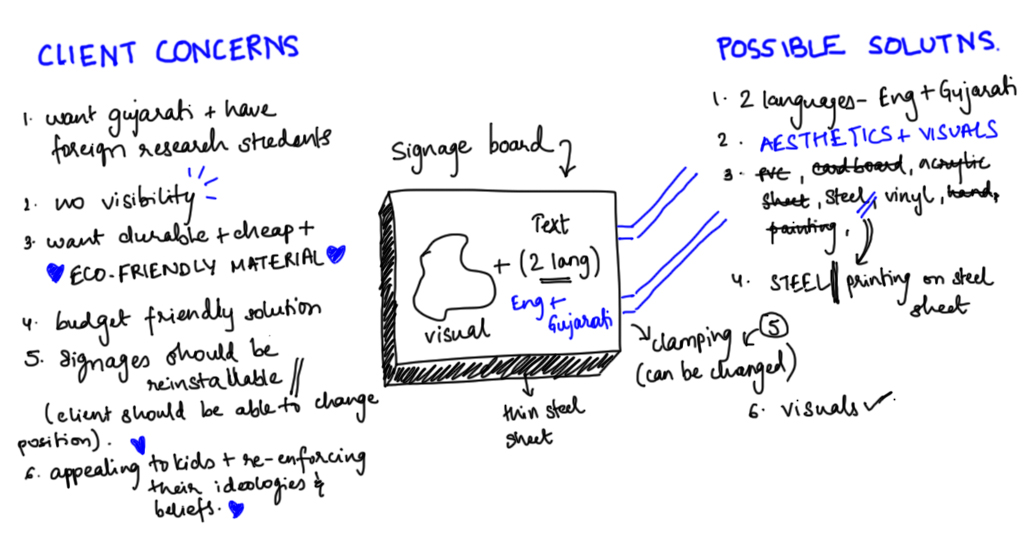 CLIENT CONCERNS
1. want gujarati + have
foreign research students
2. no visibility
3. want durable + cheap +
ECO-FRIENDLY MATERIAL
4. budget friendly solution
5. signages should be
reinstallable
(client should be able to change
position).
6. appealing to kids + re-enforcing
their ideologies &
beliefs.
Signage board
Text
+ (2 lang)
Eng +
Gujarati
visual
thin steel
sheet
POSSIBLE SOLUTNS.
1. 2 languages- Eng + Gujarati
2. AESTHETICS + VISUALS
3. PVC, cardboard, acrylic
sheet, Steel, vinyl, hand,
painting,
4. STEEL printing on steel
sheet
5
clamping
(can be changed)
6. visuals